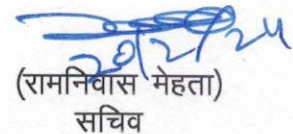 (रामनिवास मेहता)
सचिव